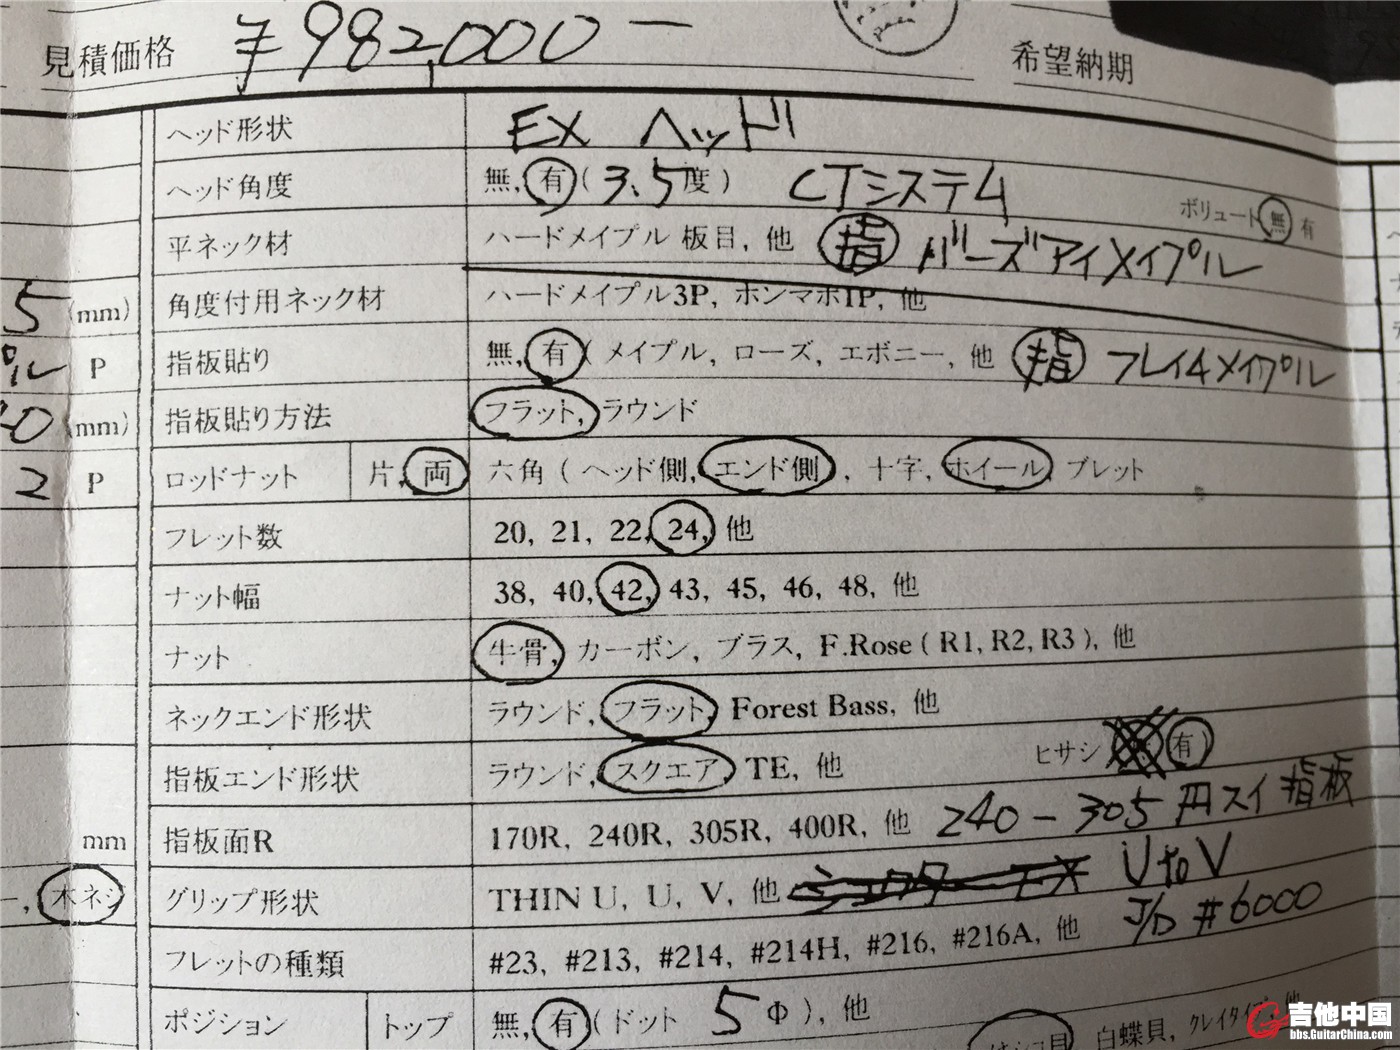 見積価格 ¥982,000- 希望納期
ヘッド形状 EX ヘッド
ヘッド角度 無, 有 ( 3.5 度 ) CTシステム
ボリュート 無 有
平ネック材 ハードメイプル 板目, 他 指 バーズアイメイプル
5 (mm) 角度付用ネック材 ハードメイプル3P, ホンマホ1P, 他
プル P 指板貼り 無, 有 ( メイプル, ローズ, エボニー, 他 指 フレイムメイプル
0 (mm) 指板貼り方法 フラット, ラウンド
2 P ロッドナット 片, 両 六角 ( ヘッド側, エンド側 , 十字, ホイール ブレット
フレット数 20, 21, 22, 24, 他
ナット幅 38, 40, 42, 43, 45, 46, 48, 他
ナット 牛骨, カーボン, ブラス, F.Rose ( R1, R2, R3 ), 他
ネックエンド形状 ラウンド, フラット, Forest Bass, 他
指板エンド形状 ラウンド, スクエア, TE, 他 ヒサシ 有 )
mm 指板面R 170R, 240R, 305R, 400R, 他 240-305 円スイ指板
木ネジ グリップ形状 THIN U, U, V, 他 U to V
フレットの種類 #23, #213, #214, #214H, #216, #216A, 他 J/D #6000
ポジション トップ 無, 有 ( ドット 5 Φ ), 他
白蝶貝, クレイ
吉他中国
bbs.GuitarChina.com